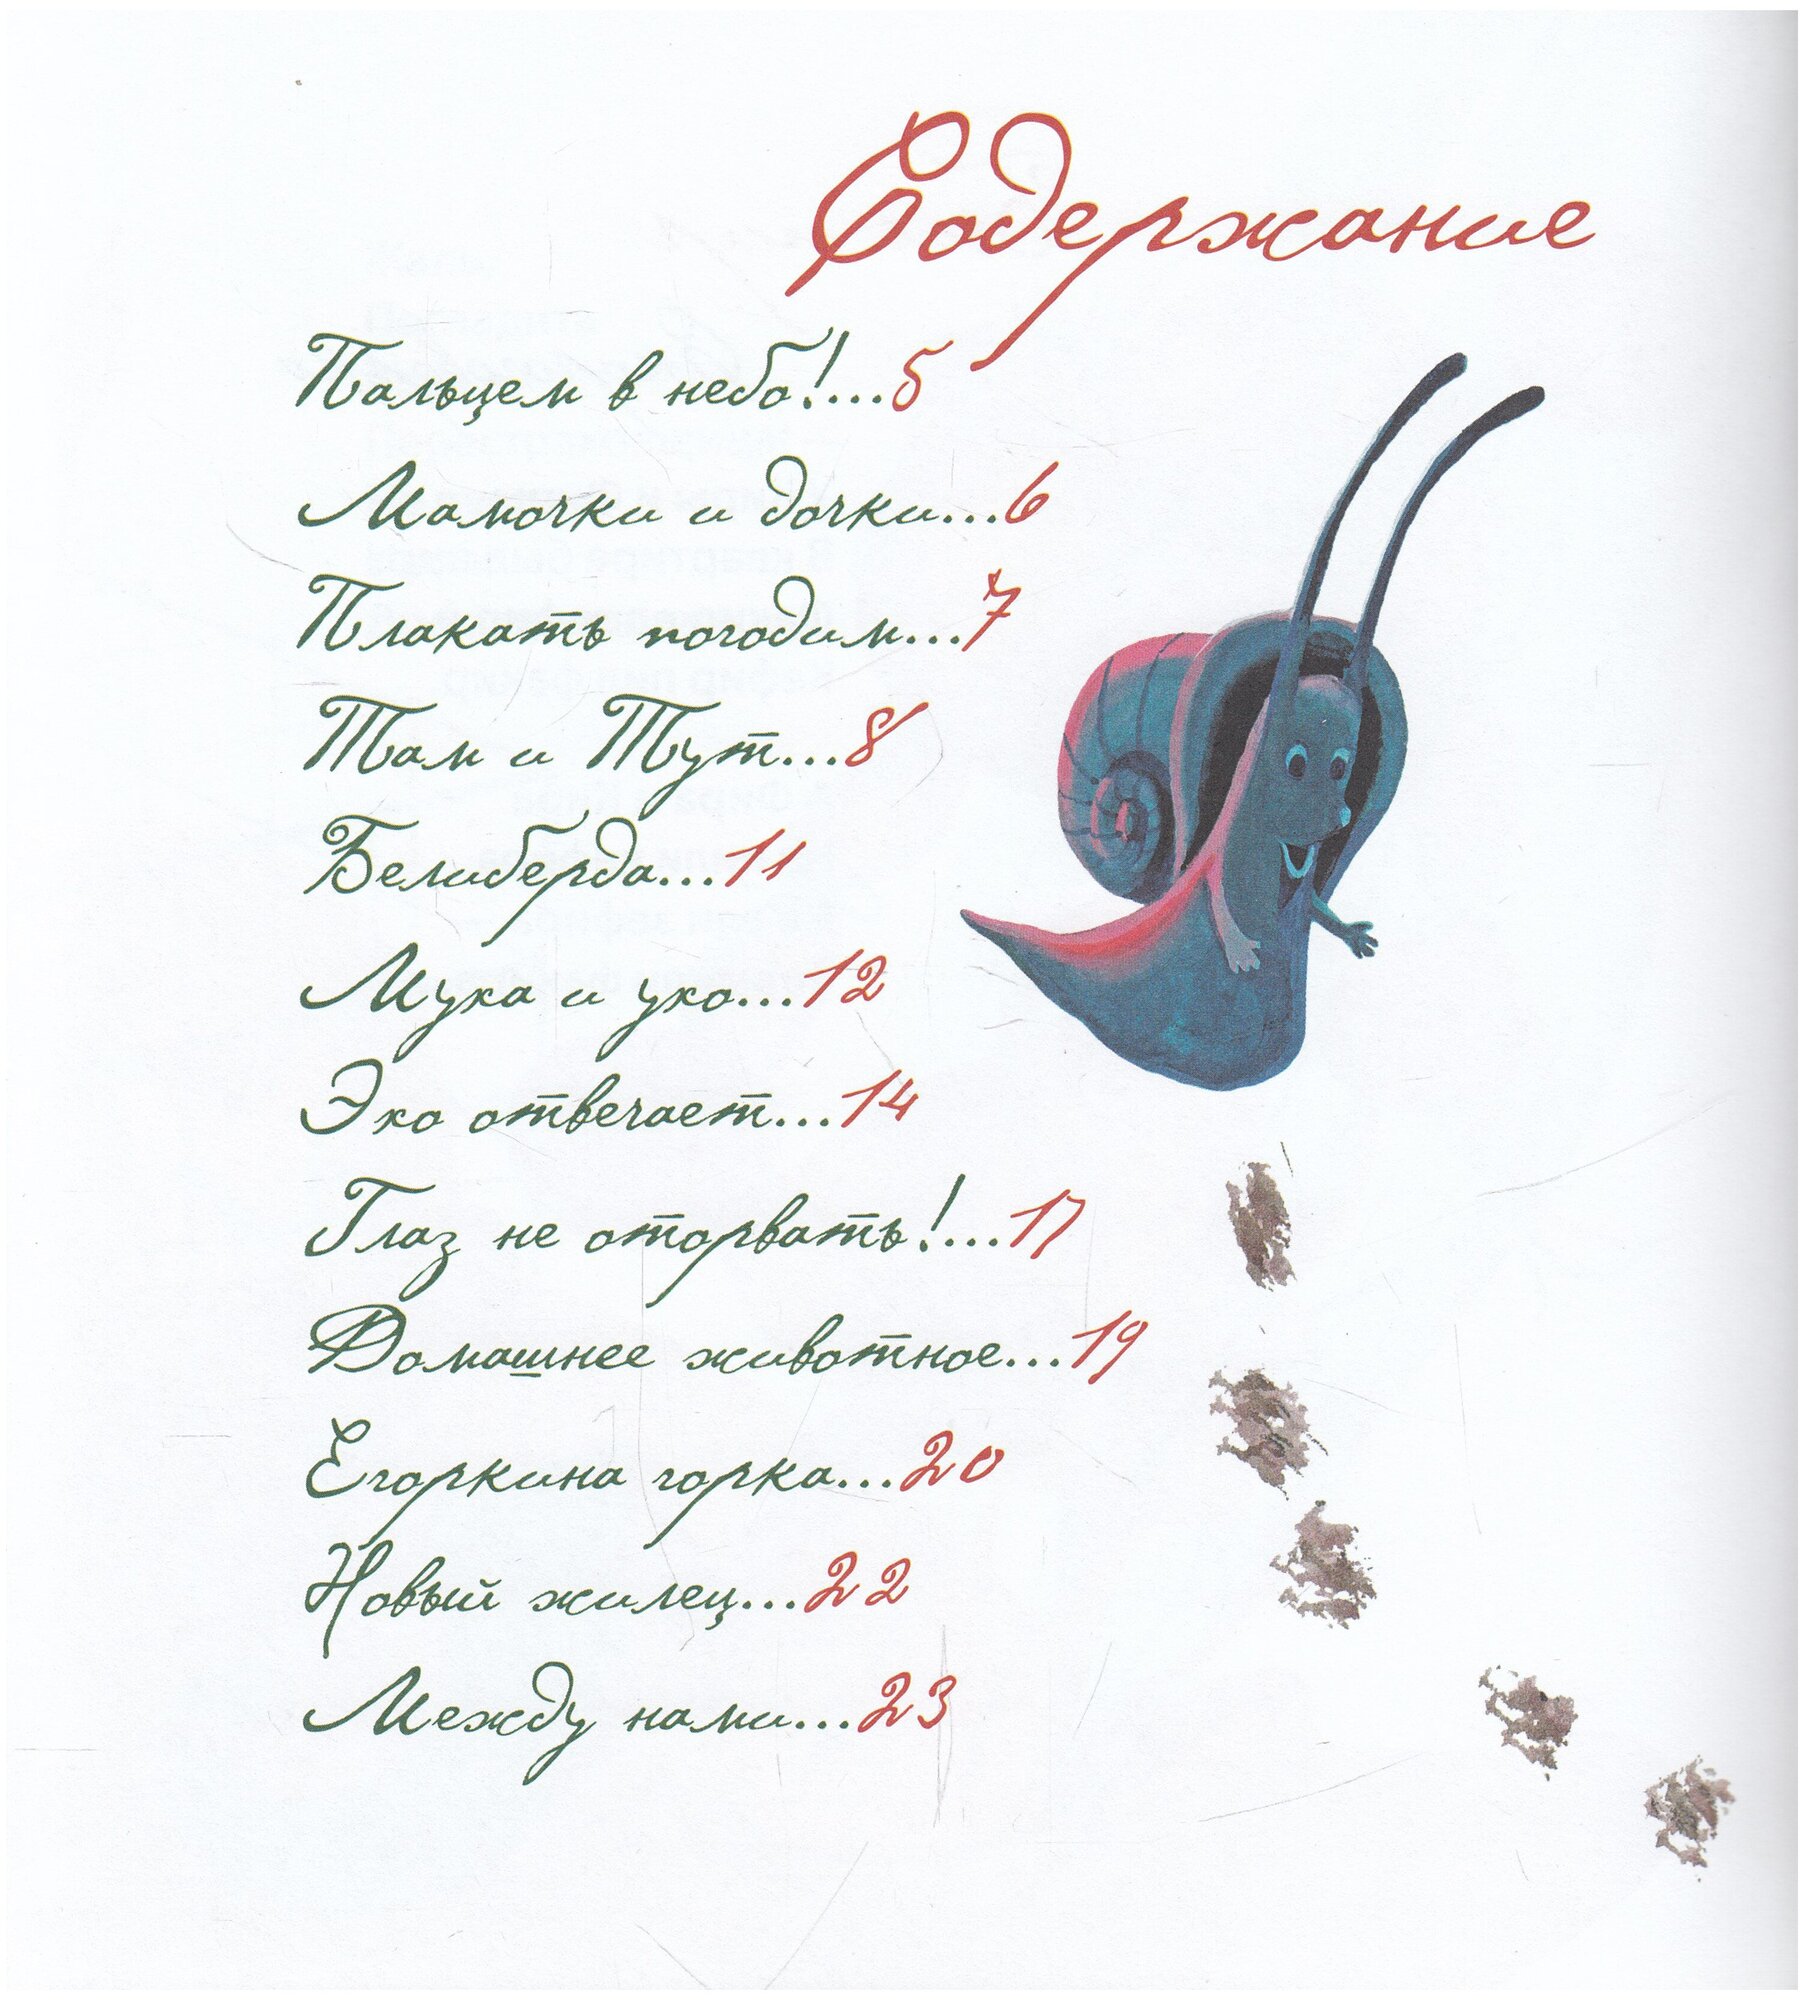 Содержание
Пальцем в небо!...5
Мамочки и дочки...6
Плакать погодим...7
Там и Тут...8
Белиберда...11
Муха и ухо...12
Эхо отвечает...14
Глаз не оторвать!...17
Домашнее животное...19
Егоркина горка...20
Новый жилец...22
Между нами...23